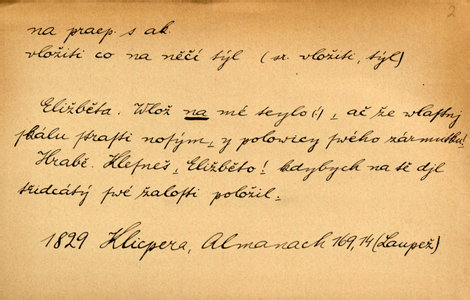 2
na praep. s ak.
vložiti co na něčí týl (sr. vložiti, týl)
Eližběta. Wlož na mé teylo (!), ač že wlastnj
skálu strasti nosým, y polowicy swého zármutku!
Hrabě. Klesneš, Eližběto! kdybych na tě djl
třidcátý swé žalosti položil.
1829 Klicpera, Almanach 169, 14 (Laupež)